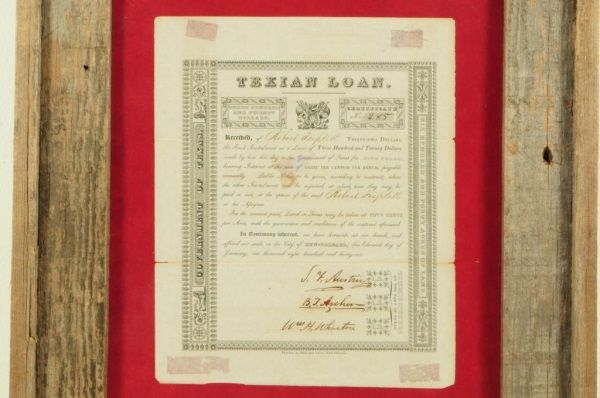 TEXIAN LOAN.
THREE HUNDRED
AND TWENTY
DOLLARS.
CERTIFICATE
No. 285
Received, of Robert Triplett Thirty-two Dollars,
the First Instalment on a Loan of Three Hundred and Twenty Dollars,
made by him this day to the Government of Texas for FIVE YEARS,
bearing Interest at the rate of EIGHT PER CENTUM PER ANNUM, payable
annually. Public Notice to be given, according to contract, when
the other Instalments will be required, at which time they may be
paid or not, at the option of the said Robert Triplett
or his Assigns.
For the amount paid, Land in Texas may be taken at FIFTY CENTS
per Acre, with the guaranties and conditions of the contract aforesaid.
In Testimony whereof, we have hereunto set our hands, and
affixed our seals, in the City of NEW-ORLEANS, this Eleventh day of
January, one thousand eight hundred and thirty-six.
S. F. Austin
B. T. Archer
Wm. H. Wharton
GOVERNMENT OF TEXAS.
SIX HUNDRED AND FORTY ACRES OF LAND.